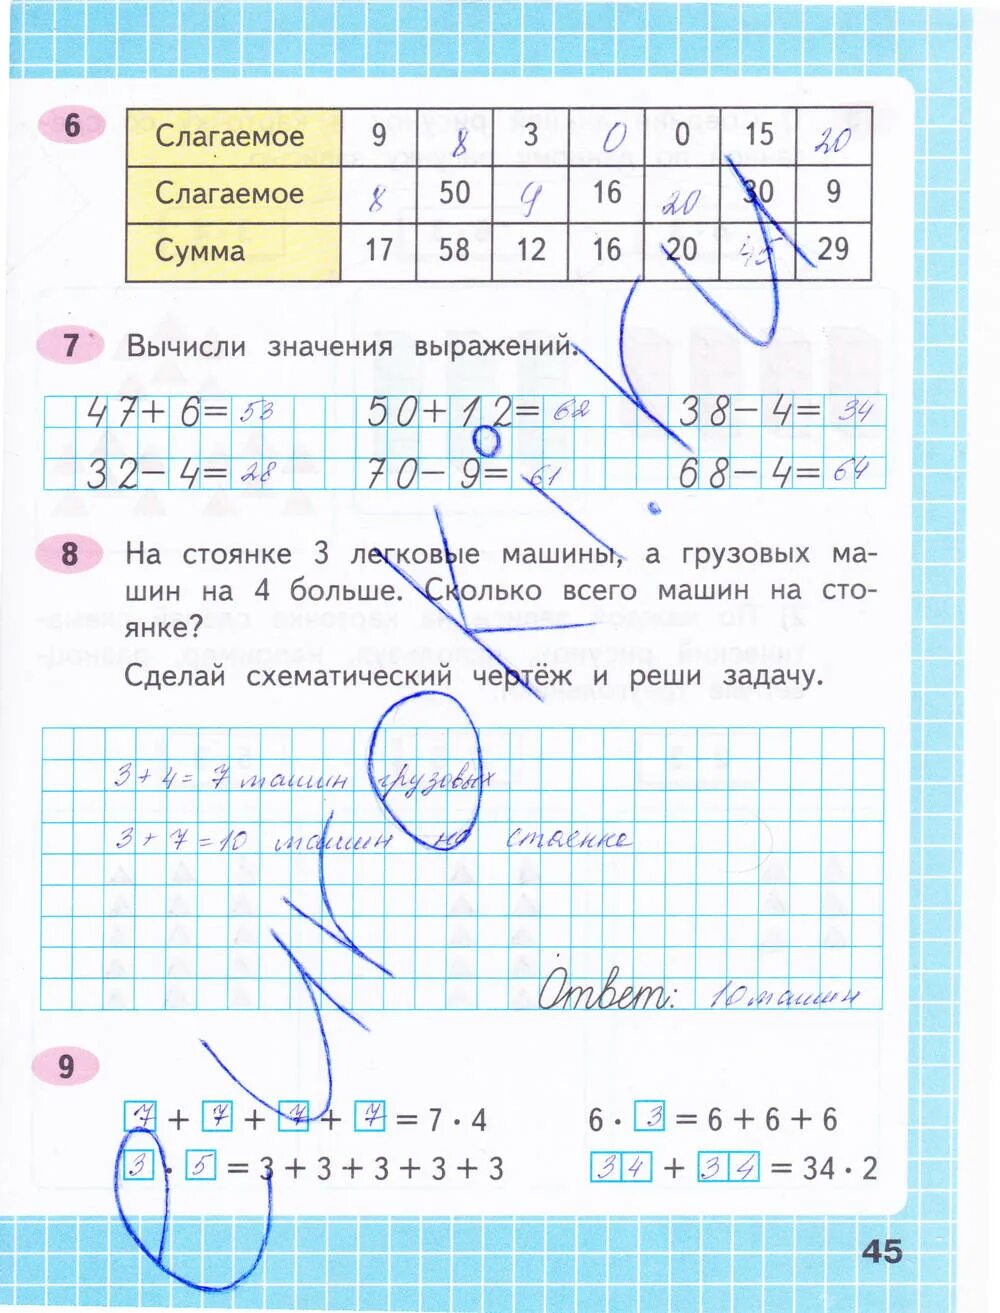 6
Слагаемое 9 8 3 0 0 15 20
Слагаемое 8 50 9 16 20 30 9
Сумма 17 58 12 16 20 45 29
7 Вычисли значения выражений.
47+6=53 50+12=62 38-4=34
32-4=28 70-9=61 68-4=64
8 На стоянке 3 легковые машины, а грузовых ма-
шин на 4 больше. Сколько всего машин на сто-
янке?
Сделай схематический чертёж и реши задачу.
3+4=7 машин грузовых
3+7=10 машин на стоянке
Ответ: 10 машин
9
7 + 7 + 7 + 7 = 7 · 4 6 · 3 = 6 + 6 + 6
3 · 5 = 3 + 3 + 3 + 3 + 3 34 + 34 = 34 · 2
45